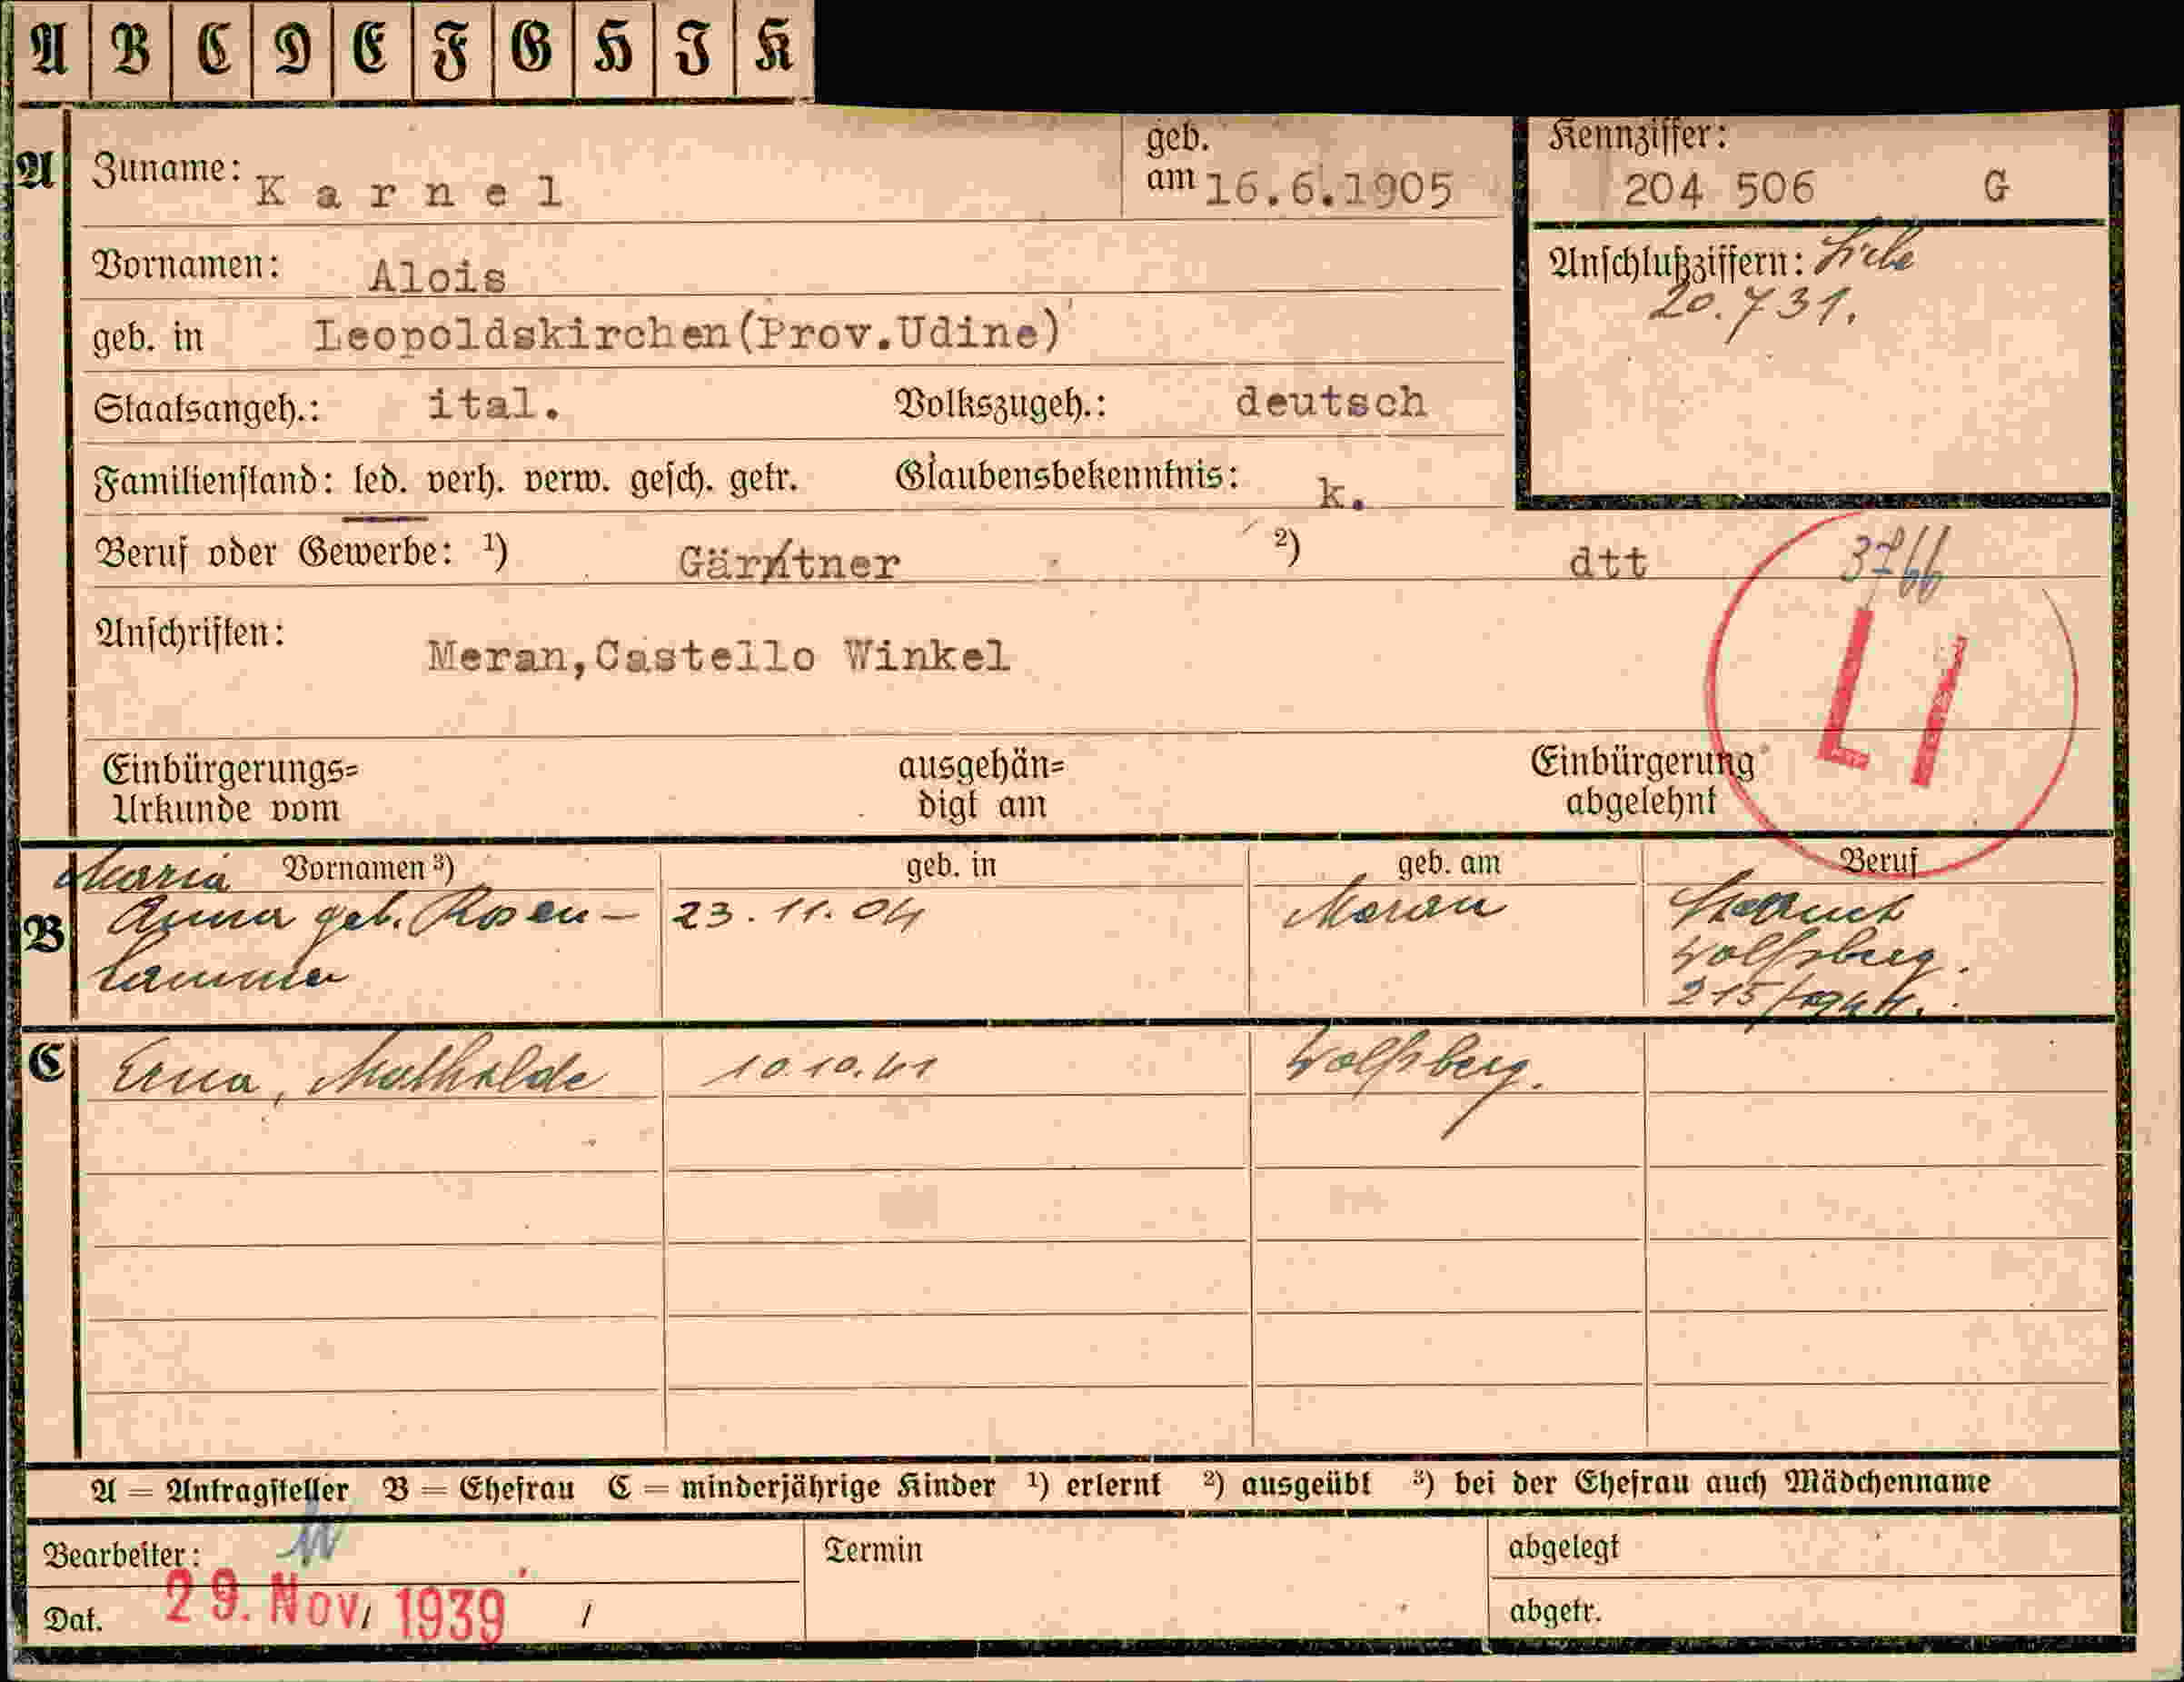 A B C D E F G H I K
A Zuname: Karnel geb. am 16.6.1905 Kennziffer: 204 506 G
Vornamen: Alois Anschlußziffern: Siehe
20.731.
geb. in Leopoldskirchen(Prov.Udine)
Staatsangeh.: ital. Volkszugeh.: deutsch
Familienstand: led. verh. verw. gesch. getr. Glaubensbekenntnis: k.
Beruf oder Gewerbe: ¹) Gärtner ²) dtt 3766
Anschriften: Meran,Castello Winkel
LI
Einbürgerungs= ausgehän= Einbürgerung
Urkunde vom digt am abgelehnt
Maria Vornamen ³) geb. in geb. am Beruf
B Anna geb. Rosen- 23.11.04 Meran
Wolfsberg.
kammer
C Erna, Mathilde 10 10.41 Wolfsberg.
A = Antragsteller B = Ehefrau C = minderjährige Kinder ¹) erlernt ²) ausgeübt ³) bei der Ehefrau auch Mädchenname
Bearbeiter: Termin abgelegt
Dat. 29. Nov. 1939 / abgetr.